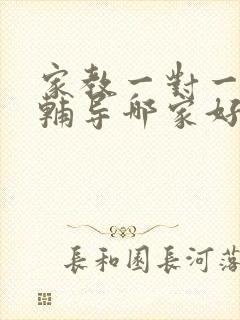 家教一對一
輔导哪家好
長和園長河落